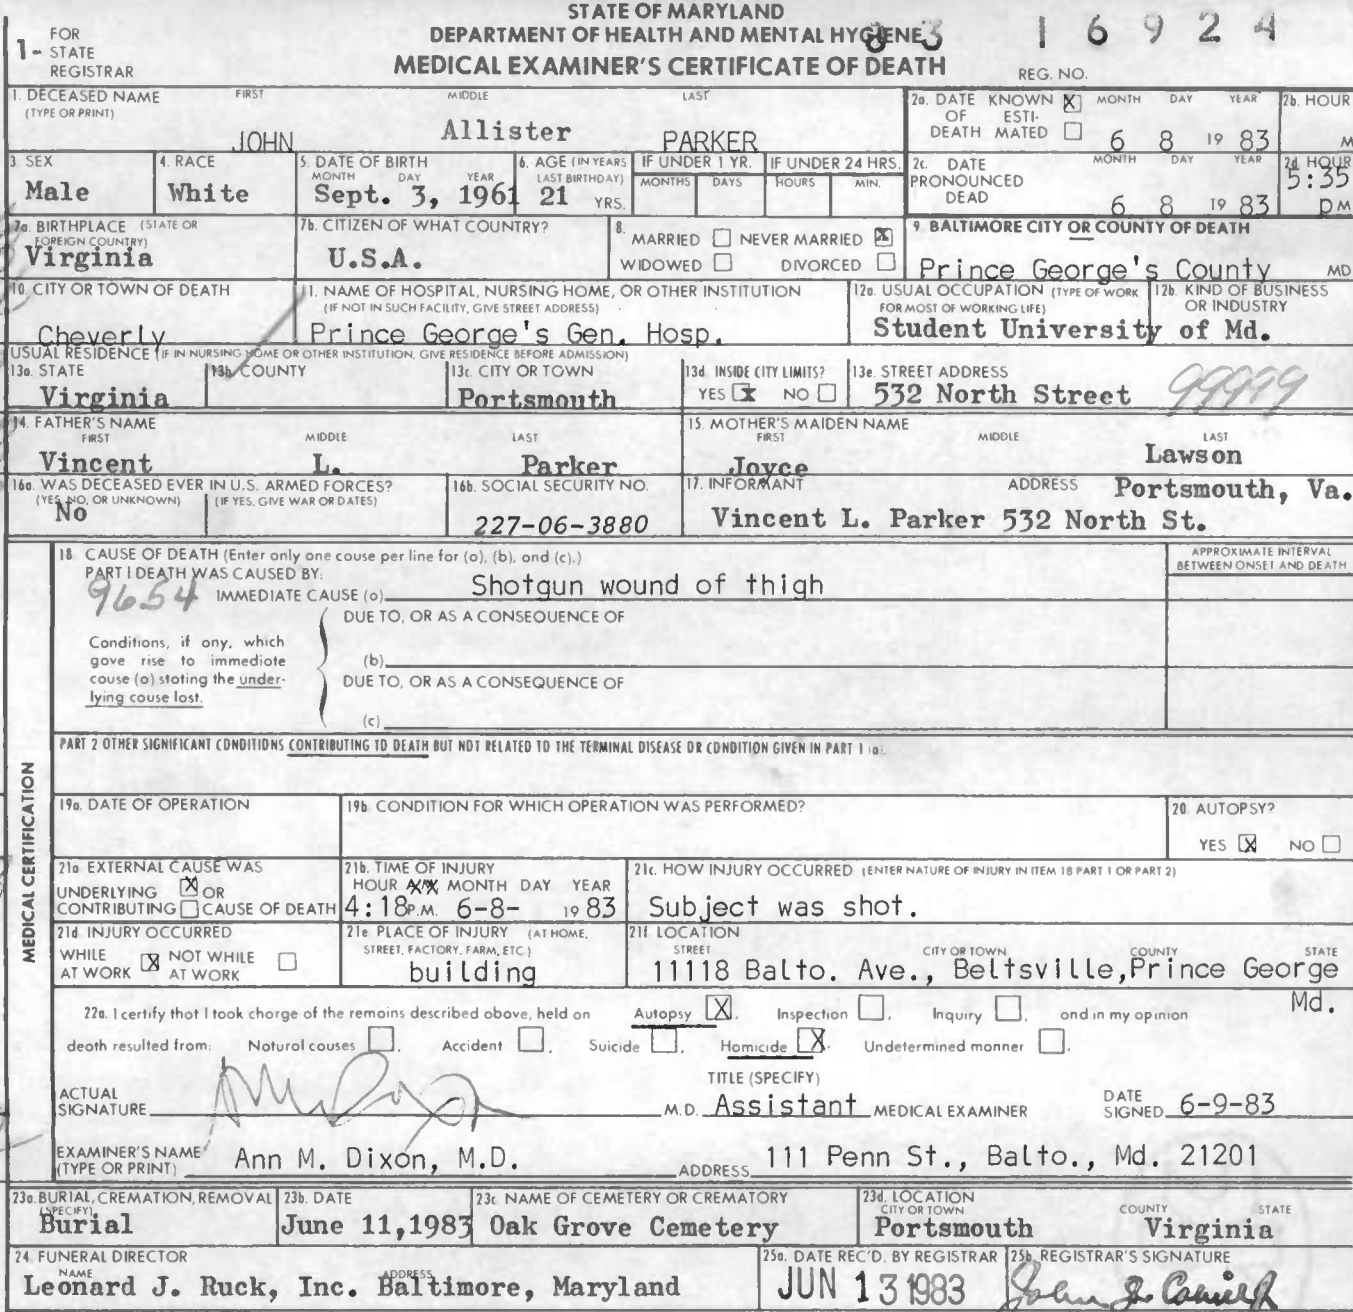 STATE OF MARYLAND
DEPARTMENT OF HEALTH AND MENTAL HYGIENE
MEDICAL EXAMINER'S CERTIFICATE OF DEATH
1- FOR STATE REGISTRAR
83 16924
REG. NO.
1. DECEASED NAME (TYPE OR PRINT) FIRST MIDDLE LAST
JOHN Allister PARKER
2a. DATE OF DEATH KNOWN X ESTIMATED MONTH DAY YEAR
6 8 19 83
2b. HOUR
M
3. SEX
Male
4. RACE
White
5. DATE OF BIRTH MONTH DAY YEAR
Sept. 3, 1961
6. AGE (IN YEARS LAST BIRTHDAY)
21 YRS.
IF UNDER 1 YR. MONTHS DAYS
IF UNDER 24 HRS. HOURS MIN.
2c. DATE PRONOUNCED DEAD MONTH DAY YEAR
6 8 19 83
2d. HOUR
5:35
PM
7a. BIRTHPLACE (STATE OR FOREIGN COUNTRY)
Virginia
7b. CITIZEN OF WHAT COUNTRY?
U.S.A.
8. MARRIED NEVER MARRIED X
WIDOWED DIVORCED
9. BALTIMORE CITY OR COUNTY OF DEATH
Prince George's County MD
10. CITY OR TOWN OF DEATH
Cheverly
11. NAME OF HOSPITAL, NURSING HOME, OR OTHER INSTITUTION
(IF NOT IN SUCH FACILITY, GIVE STREET ADDRESS)
Prince George's Gen. Hosp.
12a. USUAL OCCUPATION (TYPE OF WORK FOR MOST OF WORKING LIFE)
12b. KIND OF BUSINESS OR INDUSTRY
Student University of Md.
USUAL RESIDENCE (IF IN NURSING HOME OR OTHER INSTITUTION, GIVE RESIDENCE BEFORE ADMISSION)
13a. STATE
Virginia
13b. COUNTY
13c. CITY OR TOWN
Portsmouth
13d. INSIDE CITY LIMITS?
YES X NO
13e. STREET ADDRESS
532 North Street 99999
14. FATHER'S NAME FIRST MIDDLE LAST
Vincent L. Parker
15. MOTHER'S MAIDEN NAME FIRST MIDDLE LAST
Joyce Lawson
16a. WAS DECEASED EVER IN U.S. ARMED FORCES?
(YES, NO, OR UNKNOWN) (IF YES, GIVE WAR OR DATES)
No
16b. SOCIAL SECURITY NO.
227-06-3880
17. INFORMANT ADDRESS Portsmouth, Va.
Vincent L. Parker 532 North St.
18. CAUSE OF DEATH (Enter only one cause per line for (a), (b), and (c).)
PART I DEATH WAS CAUSED BY:
9654 IMMEDIATE CAUSE (a) Shotgun wound of thigh
APPROXIMATE INTERVAL BETWEEN ONSET AND DEATH
DUE TO, OR AS A CONSEQUENCE OF
Conditions, if any, which gave rise to immediate cause (a) stating the underlying cause last.
(b)
DUE TO, OR AS A CONSEQUENCE OF
(c)
PART 2 OTHER SIGNIFICANT CONDITIONS CONTRIBUTING TO DEATH BUT NOT RELATED TO THE TERMINAL DISEASE OR CONDITION GIVEN IN PART 1 (a).
MEDICAL CERTIFICATION
19a. DATE OF OPERATION
19b. CONDITION FOR WHICH OPERATION WAS PERFORMED?
20. AUTOPSY?
YES X NO
21a. EXTERNAL CAUSE WAS
UNDERLYING X OR
CONTRIBUTING CAUSE OF DEATH
21b. TIME OF INJURY
HOUR MONTH DAY YEAR
4:18 P.M. 6-8- 19 83
21c. HOW INJURY OCCURRED (ENTER NATURE OF INJURY IN ITEM 18 PART 1 OR PART 2)
Subject was shot.
21d. INJURY OCCURRED
WHILE AT WORK X NOT WHILE AT WORK
21e. PLACE OF INJURY (AT HOME, STREET, FACTORY, FARM, ETC.)
building
21f. LOCATION
STREET CITY OR TOWN COUNTY STATE
11118 Balto. Ave., Beltsville, Prince George
Md.
22a. I certify that I took charge of the remains described above, held on Autopsy X, Inspection, Inquiry, and in my opinion
death resulted from: Natural causes, Accident, Suicide, Homicide X, Undetermined manner.
ACTUAL SIGNATURE
TITLE (SPECIFY)
M.D. Assistant MEDICAL EXAMINER
DATE SIGNED 6-9-83
EXAMINER'S NAME (TYPE OR PRINT) Ann M. Dixon, M.D.
ADDRESS 111 Penn St., Balto., Md. 21201
23a. BURIAL, CREMATION, REMOVAL (SPECIFY)
Burial
23b. DATE
June 11, 1983
23c. NAME OF CEMETERY OR CREMATORY
Oak Grove Cemetery
23d. LOCATION CITY OR TOWN COUNTY STATE
Portsmouth Virginia
24. FUNERAL DIRECTOR
NAME ADDRESS
Leonard J. Ruck, Inc. Baltimore, Maryland
25a. DATE REC'D. BY REGISTRAR
JUN 13 1983
25b. REGISTRAR'S SIGNATURE